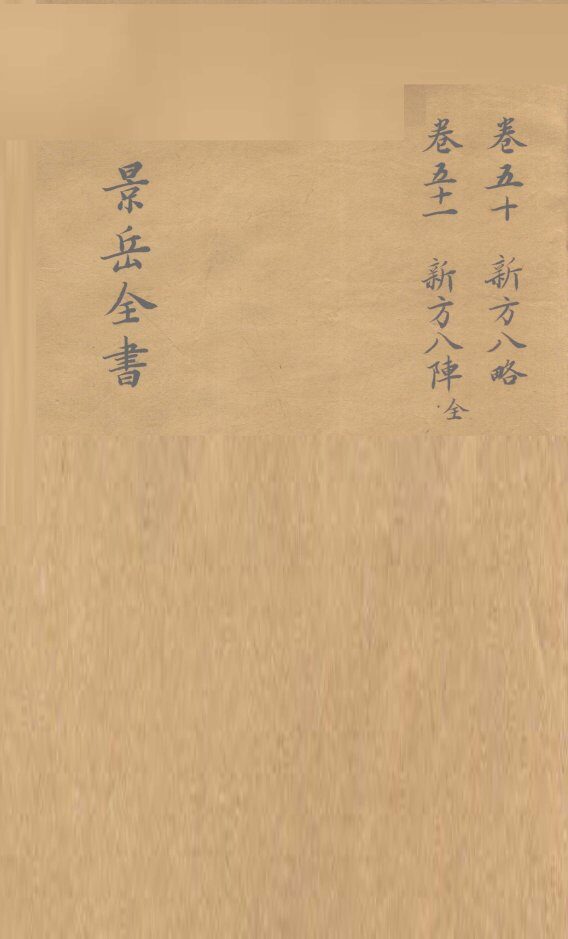 卷五十 新方八略
卷五十一 新方八陣全
景岳全書